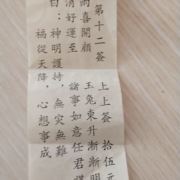 第十二簽 上上簽 拾伍元
喜開顏 玉兔東升漸漸明
消好運至 諸事如意任君
曰：神明護持，無災無難
福從天降，心想事成